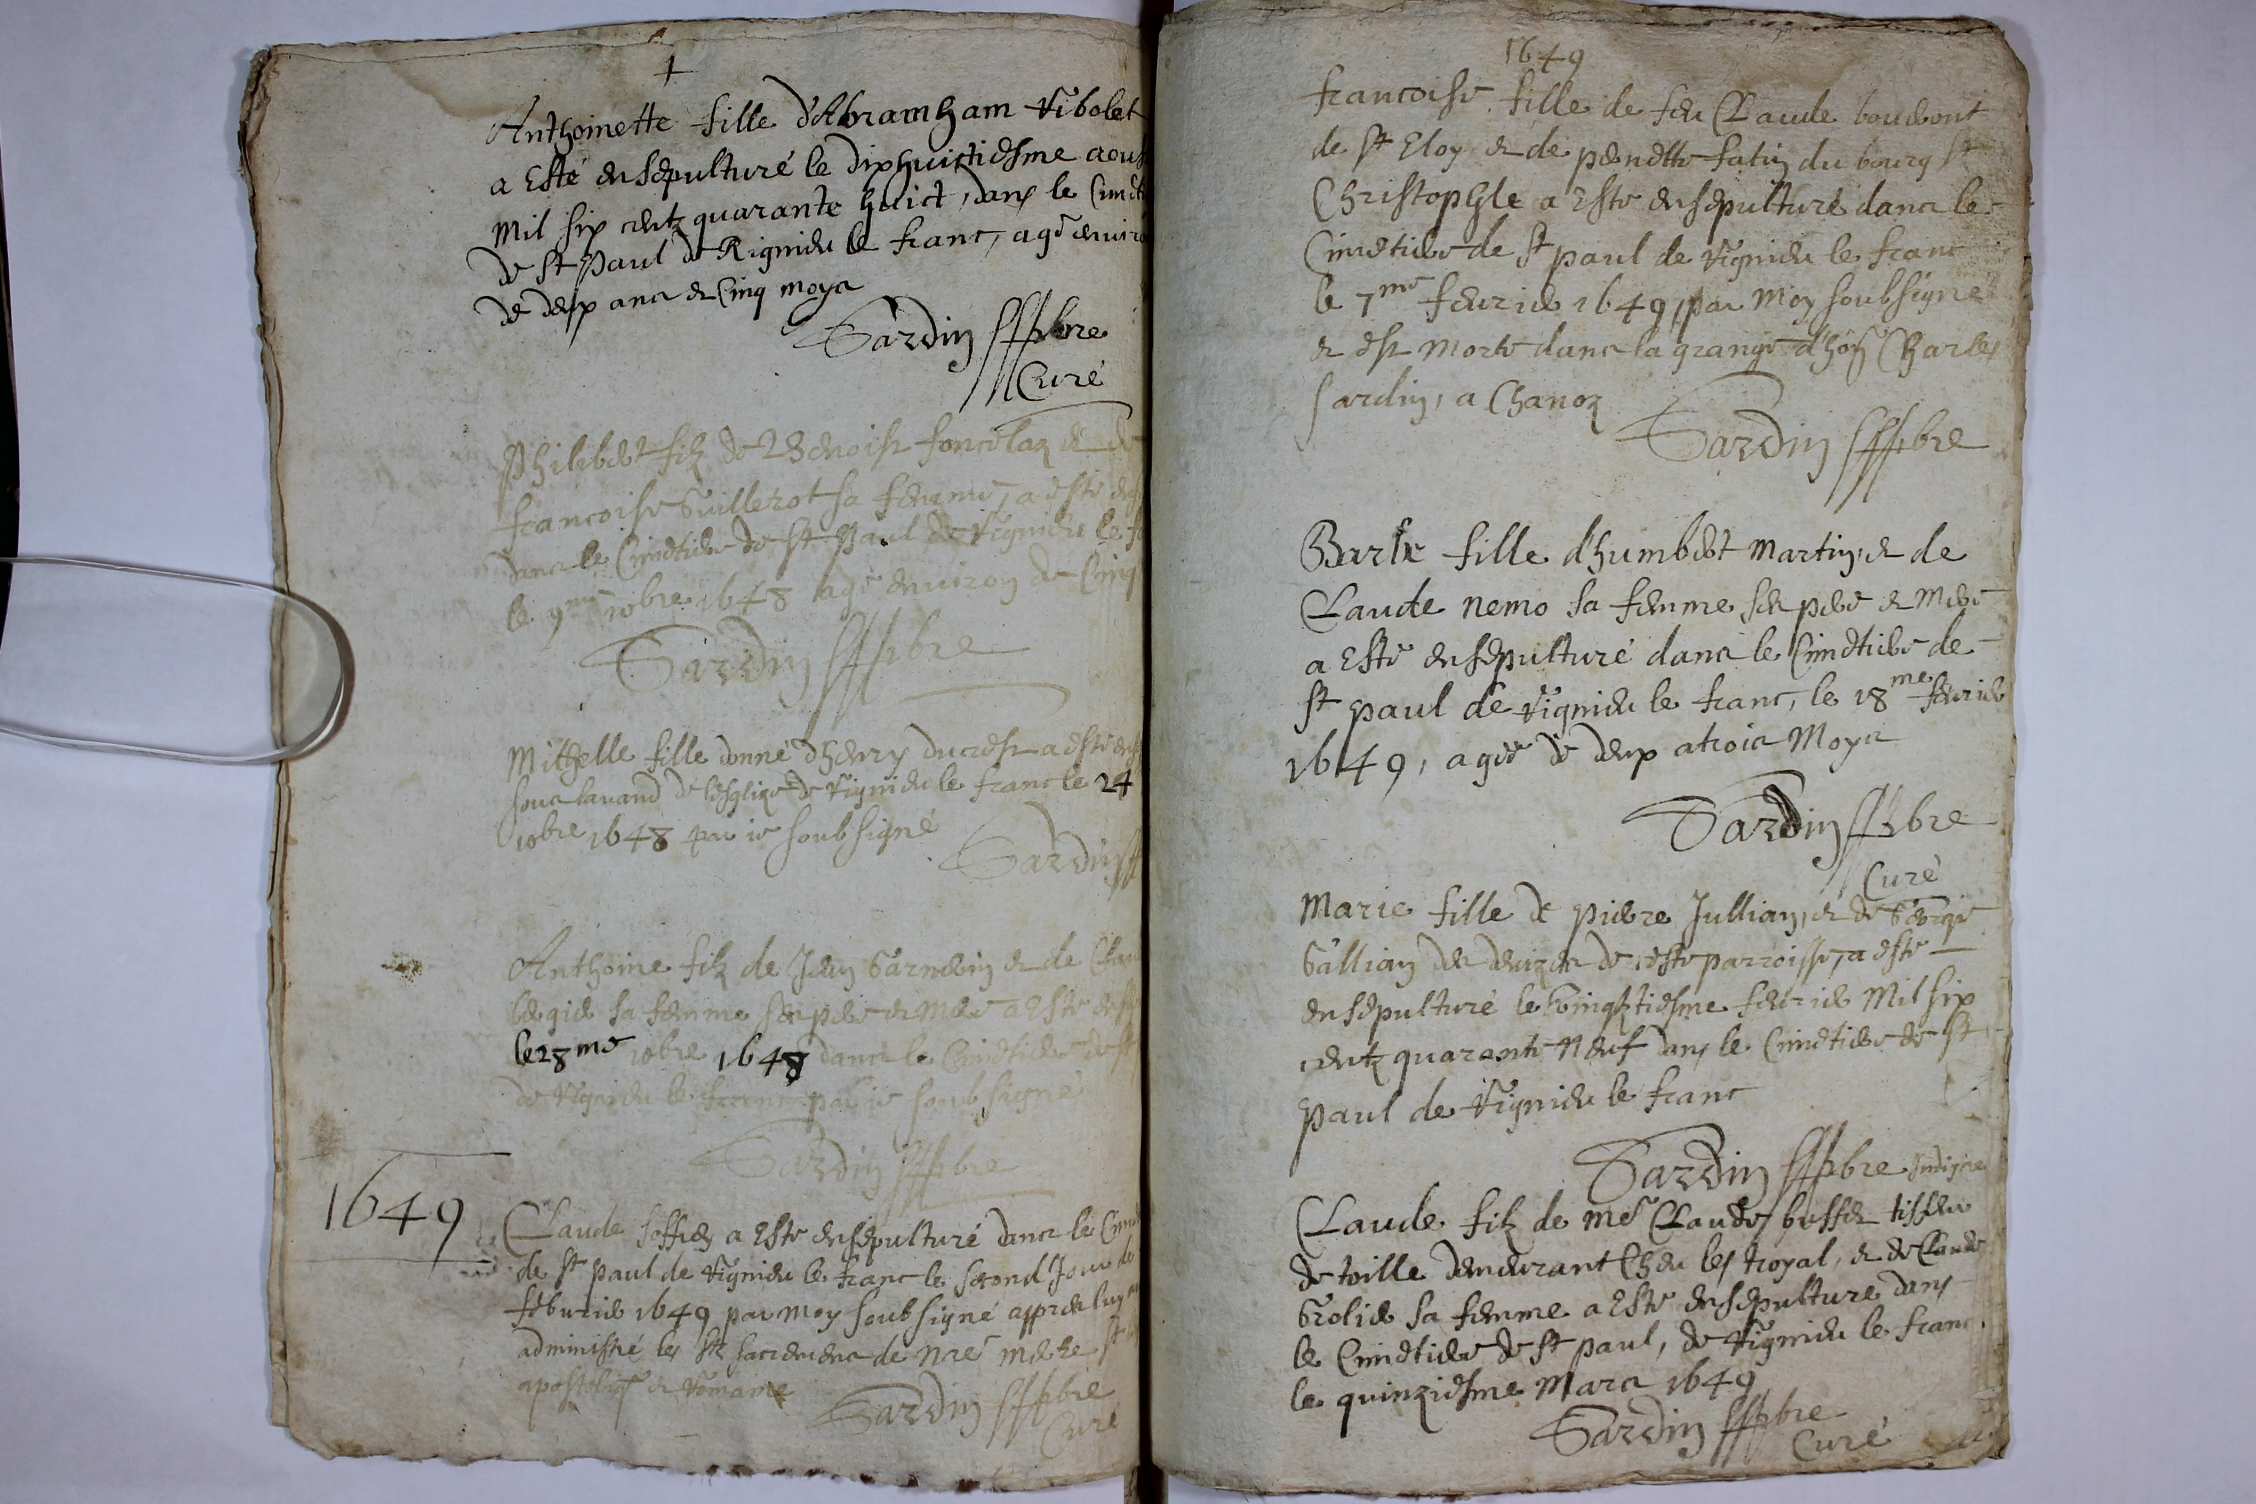 Anthoinette fille d'Abramham Vibolet
a Esté ensepulturé le dixhuictiesme aous
Mil six centz quarante huict, dans le Cimeti
de st Paul de Rignieu le franc, agé enviro
de deux ans et Cinq moys
Sardin pbre
Curé
Philibert filz de Benoist foncelaz et de
francoise Guillerot sa femme, a esté ens
dans le Cimetiere de st Paul de Rignieu le f
le 9me 10bre 1648 agé environ de Cinq
Sardin pbre
Mithelle fille donné d'henry ducrest a esté ens
soubs lavand de lesglize de Rignieu le franc le 24
10bre 1648 par ie soubsigné
Sardin
Anthoine filz de Jean Garnerin et de Clau
sa femme ses pere et mere a Esté ens
le 28me 10bre 1648 dans le Cimetiere de st
de Rignieu le franc par ie soubsigné
Sardin pbre
1649
Claude a Esté ensepulturé dans le Cime
de st paul de Rignieu le franc le second Jour de
feburier 1649 par moy soubsigné appres luy
administré les sts sacremens de nre mere st
apostoliq et Romaine
Sardin pbre
Curé
1649
francoise fille de feu Claude bouvont
de st Eloy et de pernette fatin du bourg st
Christophle a esté ensepulturé dans le
Cimetiere de st paul de Rignieu le franc
le 7me feurier 1649, par Moy soubsigné
et est morte dans la grange d'hon Charles
sardin, a Chanoz
Sardin pbre
Barbe fille d'humbert Martin, et de
Claude nemo sa femme ses pere et Mere
a Esté ensepulturé dans le Cimetiere de
st paul de Rignieu le franc, le 18me feurier
1649, agée de deux a trois Moys
Sardin pbre
Curé
Marie fille de pierre Jullian, et de George
Gallian de ceste parroisse, a esté
ensepulturé le vingtiesme feurier Mil six
centz quarante Neuf dans le Cimetiere de st
Paul de Rignieu le franc
Sardin pbre Indigne
Claude filz de me Claude buffet tisseur
de toille demeurant Cheu les Royal, et de Claude
Grolier sa femme a Esté ensepulturé dans
le Cimetiere de st paul, de Rignieu le franc
le quinziesme Mars 1649
Sardin pbre
Curé